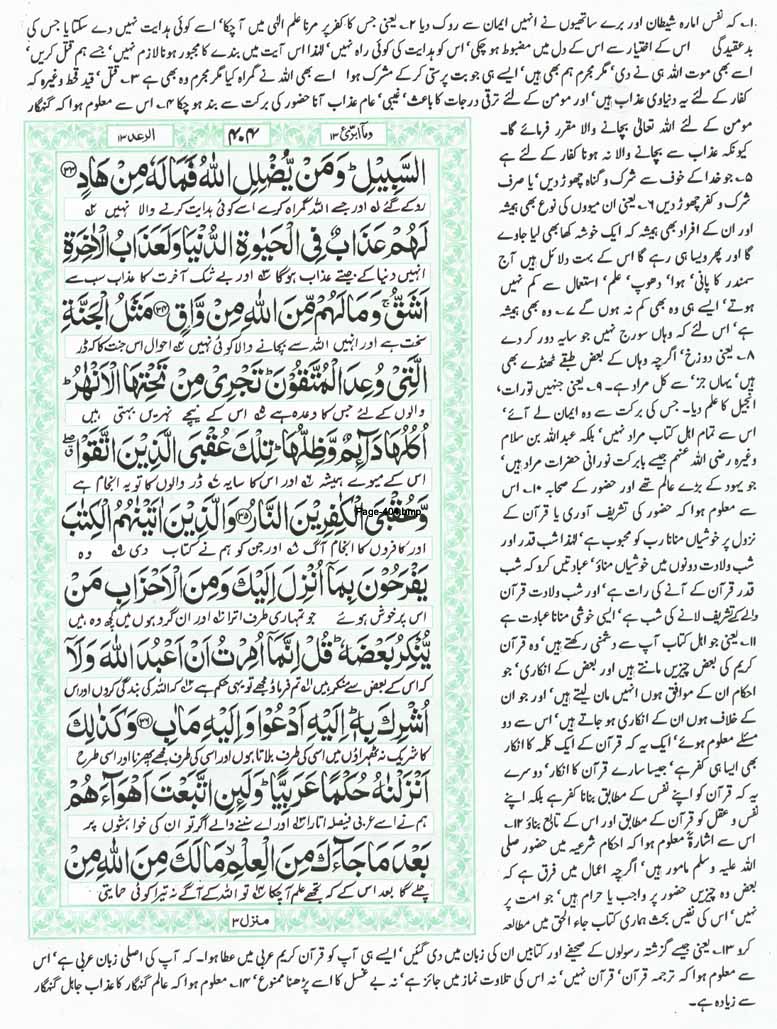 ۱۔ کہ نفس امارہ شیطان اور برے ساتھیوں نے انہیں ایمان سے روک دیا ۲۔ یعنی جس کا کفر پر مرنا علم الٰہی میں آ چکا' اسے کوئی ہدایت نہیں دے سکتا یا جس کی
بدعقیدگی اس کے اختیار سے اس کے دل میں مضبوط ہو چکی' اس کو ہدایت کی کوئی راہ نہیں' لہٰذا اس آیت میں بندے کا مجبور ہونا لازم نہیں' جسے ہم قتل کریں'
اسے بھی موت اللہ ہی نے دی' مگر مجرم ہم بھی ہیں' ایسے ہی جو بت پرستی کر کے مشرک ہوا اسے بھی اللہ نے گمراہ کیا مگر مجرم وہ بھی ہے ۳۔ قتل' قید قحط وغیرہ کہ
کفار کے لئے یہ دنیاوی عذاب ہیں' اور مومن کے لئے ترقی درجات کا باعث' غیبی' عام عذاب آنا حضور کی برکت سے بند ہو چکا ۴۔ اس سے معلوم ہوا کہ گنہگار
مومن کے لئے اللہ تعالٰی بچانے والا مقرر فرمائے گا۔
کیونکہ عذاب سے بچانے والا نہ ہونا کفار کے لئے ہے
۵۔ جو خدا کے خوف سے شرک و گناہ چھوڑ دیں' یا صرف
شرک و کفر چھوڑ دیں ۶۔ یعنی ان میووں کی نوع بھی ہمیشہ
اور ان کے افراد بھی ہمیشہ کہ ایک خوشہ کھا بھی لیا جاوے
گا اور پھر ویسا ہی رہے گا اس کے بہت دلائل ہیں آج
سمندر کا پانی' ہوا' دھوپ' علم' استعمال سے کم نہیں
ہوتے' ایسے ہی وہ بھی کم نہ ہوں گے ۷۔ وہ بھی ہمیشہ
ہے' اس لئے کہ وہاں سورج نہیں جو سایہ دور کر دے
۸۔ یعنی دوزخ' اگرچہ وہاں کے بعض طبقے ٹھنڈے بھی
ہیں' یہاں جز' سے کل مراد ہے۔ ۹۔ یعنی جنہیں تورات'
انجیل کا علم دیا۔ جس کی برکت سے وہ ایمان لے آئے'
اس سے تمام اہل کتاب مراد نہیں' بلکہ عبداللہ بن سلام
وغیرہ رضی اللہ عنہم جیسے بابرکت نورانی حضرات مراد ہیں'
جو یہود کے بڑے عالم تھے اور حضور کے صحابہ ۱۰۔ اس
سے معلوم ہوا کہ حضور کی تشریف آوری یا قرآن کے
نزول پر خوشیاں منانا رب کو محبوب ہے' لہٰذا شب قدر اور
شب ولادت دونوں میں خوشیاں مناؤ' عبادتیں کرو کہ شب
قدر قرآن کے آنے کی رات ہے' اور شب ولادت قرآن
والے کے تشریف لانے کی شب ہے' ایسی خوشی منانا عبادت ہے
۱۱۔ یعنی جو اہل کتاب آپ سے دشمنی رکھتے ہیں' وہ قرآن
کریم کی بعض چیزیں مانتے ہیں اور بعض کے انکاری' جو
احکام ان کے موافق ہوں انہیں مان لیتے ہیں' اور جو ان
کے خلاف ہوں ان کے انکاری ہو جاتے ہیں' اس سے دو
مسئلے معلوم ہوئے' ایک یہ کہ قرآن کے ایک کلمہ کا انکار
بھی ایسا ہی کفر ہے' جیسا سارے قرآن کا انکار' دوسرے
یہ کہ قرآن کو اپنے نفس کے مطابق بنانا کفر ہے بلکہ اپنے
نفس و عقل کو قرآن کے مطابق اور اس کے تابع بناؤ ۱۲۔
اس سے اشارۃً معلوم ہوا کہ احکام شرعیہ میں حضور صلی
اللہ علیہ وسلم مامور ہیں' اگرچہ اعمال میں فرق ہے کہ
بعض وہ چیزیں حضور پر واجب یا حرام ہیں' جو امت پر
نہیں' اس کی نفیس بحث ہماری کتاب جاء الحق میں مطالعہ
ومآ ابرئ ۱۳ ۴۰۴ الرعد ۱۳
السَّبِيْلِ ؕ وَمَنْ يُّضْلِلِ اللّٰهُ فَمَالَهٗ مِنْ هَادٍ ﴿۳۳﴾
روکے گئے ۱ اور جسے اللہ گمراہ کرے اسے کوئی ہدایت کرنے والا نہیں ۲
لَهُمْ عَذَابٌ فِى الْحَيٰوةِ الدُّنْيَا وَلَعَذَابُ الْاٰخِرَةِ
انہیں دنیا کے جیتے عذاب ہوگا ۳ اور بے شک آخرت کا عذاب سب سے
اَشَقُّ ۚ وَمَا لَهُمْ مِّنَ اللّٰهِ مِنْ وَّاقٍ ﴿۳۴﴾ مَثَلُ الْجَنَّةِ
سخت ہے اور انہیں اللہ سے بچانے والا کوئی نہیں ۴ احوال اس جنت کا کہ ڈر
الَّتِىْ وُعِدَ الْمُتَّقُوْنَ ؕ تَجْرِىْ مِنْ تَحْتِهَا الْاَنْهٰرُ ؕ
والوں کے لئے جس کا وعدہ ہے ۵ اس کے نیچے نہریں بہتی ہیں
اُكُلُهَا دَآئِمٌ وَّظِلُّهَا ؕ تِلْكَ عُقْبَى الَّذِيْنَ اتَّقَوْا ۖ
اس کے میوے ہمیشہ ۶ اور اس کا سایہ ۷ ڈر والوں کا تو یہ انجام ہے
وَّعُقْبَى الْكٰفِرِيْنَ النَّارُ ﴿۳۵﴾ وَالَّذِيْنَ اٰتَيْنٰهُمُ الْكِتٰبَ
Page-404.bmp
اور کافروں کا انجام آگ ۸ اور جن کو ہم نے کتاب دی ۹ وہ
يَفْرَحُوْنَ بِمَآ اُنْزِلَ اِلَيْكَ وَمِنَ الْاَحْزَابِ مَنْ
اس پر خوش ہوتے جو تمہاری طرف اترا ۱۰ اور ان گروہوں میں کچھ وہ ہیں
يُّنْكِرُ بَعْضَهٗ ؕ قُلْ اِنَّمَآ اُمِرْتُ اَنْ اَعْبُدَ اللّٰهَ وَلَآ
کہ اس کے بعض سے منکر ہیں ۱۱ تم فرماؤ مجھے تو یہی حکم ہے ۱۲ کہ اللہ کی بندگی کروں اور اس
اُشْرِكَ بِهٖ ؕ اِلَيْهِ اَدْعُوْا وَاِلَيْهِ مَاٰبِ ﴿۳۶﴾ وَكَذٰلِكَ
کا شریک نہ ٹھہراؤں میں اسی کی طرف بلاتا ہوں اور اسی کی طرف مجھے پھرنا اور اسی طرح
اَنْزَلْنٰهُ حُكْمًا عَرَبِيًّا ؕ وَلَئِنِ اتَّبَعْتَ اَهْوَآءَهُمْ
ہم نے اسے عربی فیصلہ اتارا ۱۳ اور اے سننے والے اگر تو ان کی خواہشوں پر
بَعْدَ مَا جَآءَكَ مِنَ الْعِلْمِ ۙ مَا لَكَ مِنَ اللّٰهِ مِنْ
چلے گا بعد اس کے کہ تجھے علم آ چکا ۱۴ تو اللہ کے آگے نہ تیرا کوئی حمایتی
منزل ۳
کرو ۱۳۔ یعنی جیسے گزشتہ رسولوں کے صحیفے اور کتابیں ان کی زبان میں دی گئیں' ایسے ہی آپ کو قرآن کریم عربی میں عطا ہوا۔ کہ آپ کی اصلی زبان عربی ہے' اس
سے معلوم ہوا کہ ترجمہ قرآن' قرآن نہیں' نہ اس کی تلاوت نماز میں جائز ہے' نہ بے غسل کا اسے پڑھنا ممنوع' ۱۴۔ معلوم ہوا کہ عالم گنہگار کا عذاب جاہل گنہگار
سے زیادہ ہے۔